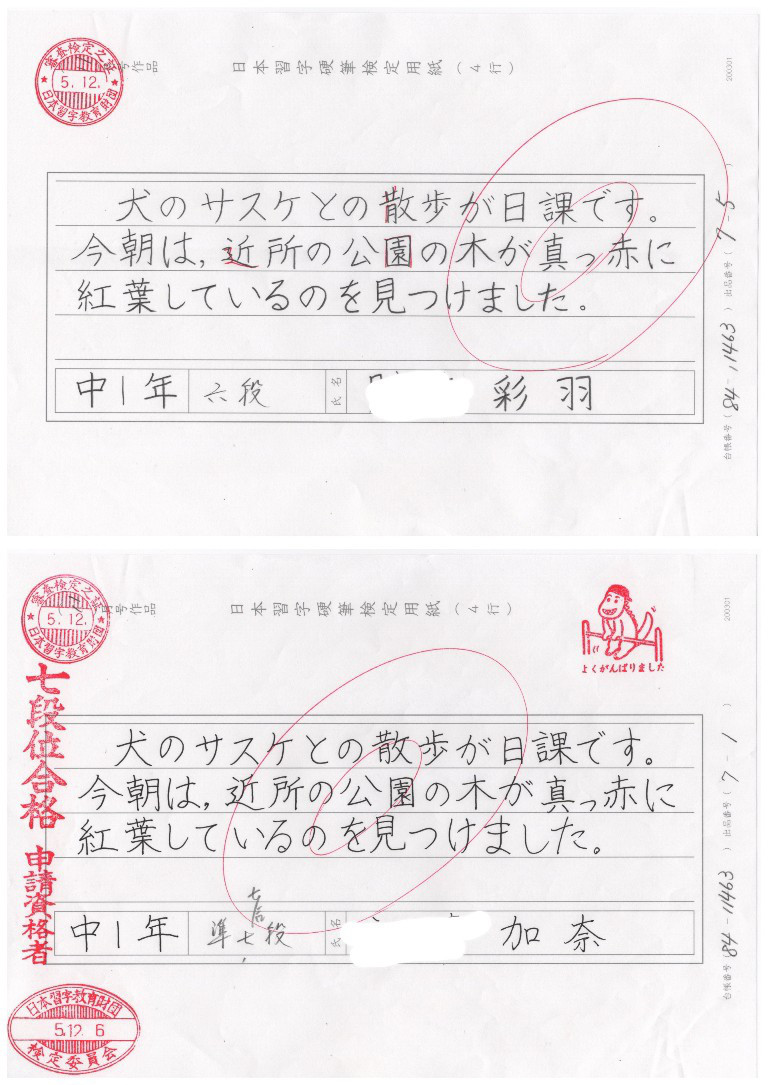 審査検定之証
5.12.
日本習字教育財団
号作品
日本習字硬筆検定用紙(4行)
200301
犬のサスケとの散歩が日課です。
今朝は,近所の公園の木が真っ赤に
紅葉しているのを見つけました。
中1年
六段
氏名
彩羽
台帳番号(84-11463)出品番号(7-5)
審査検定之証
5.12.
日本習字教育財団
月号作品
日本習字硬筆検定用紙(4行)
よくがんばりました
200301
七段位合格 申請資格者
犬のサスケとの散歩が日課です。
今朝は,近所の公園の木が真っ赤に
紅葉しているのを見つけました。
中1年
準七段
氏名
加奈
台帳番号(84-11463)出品番号(7-1)
日本習字教育財団
5.12.6
検定委員会